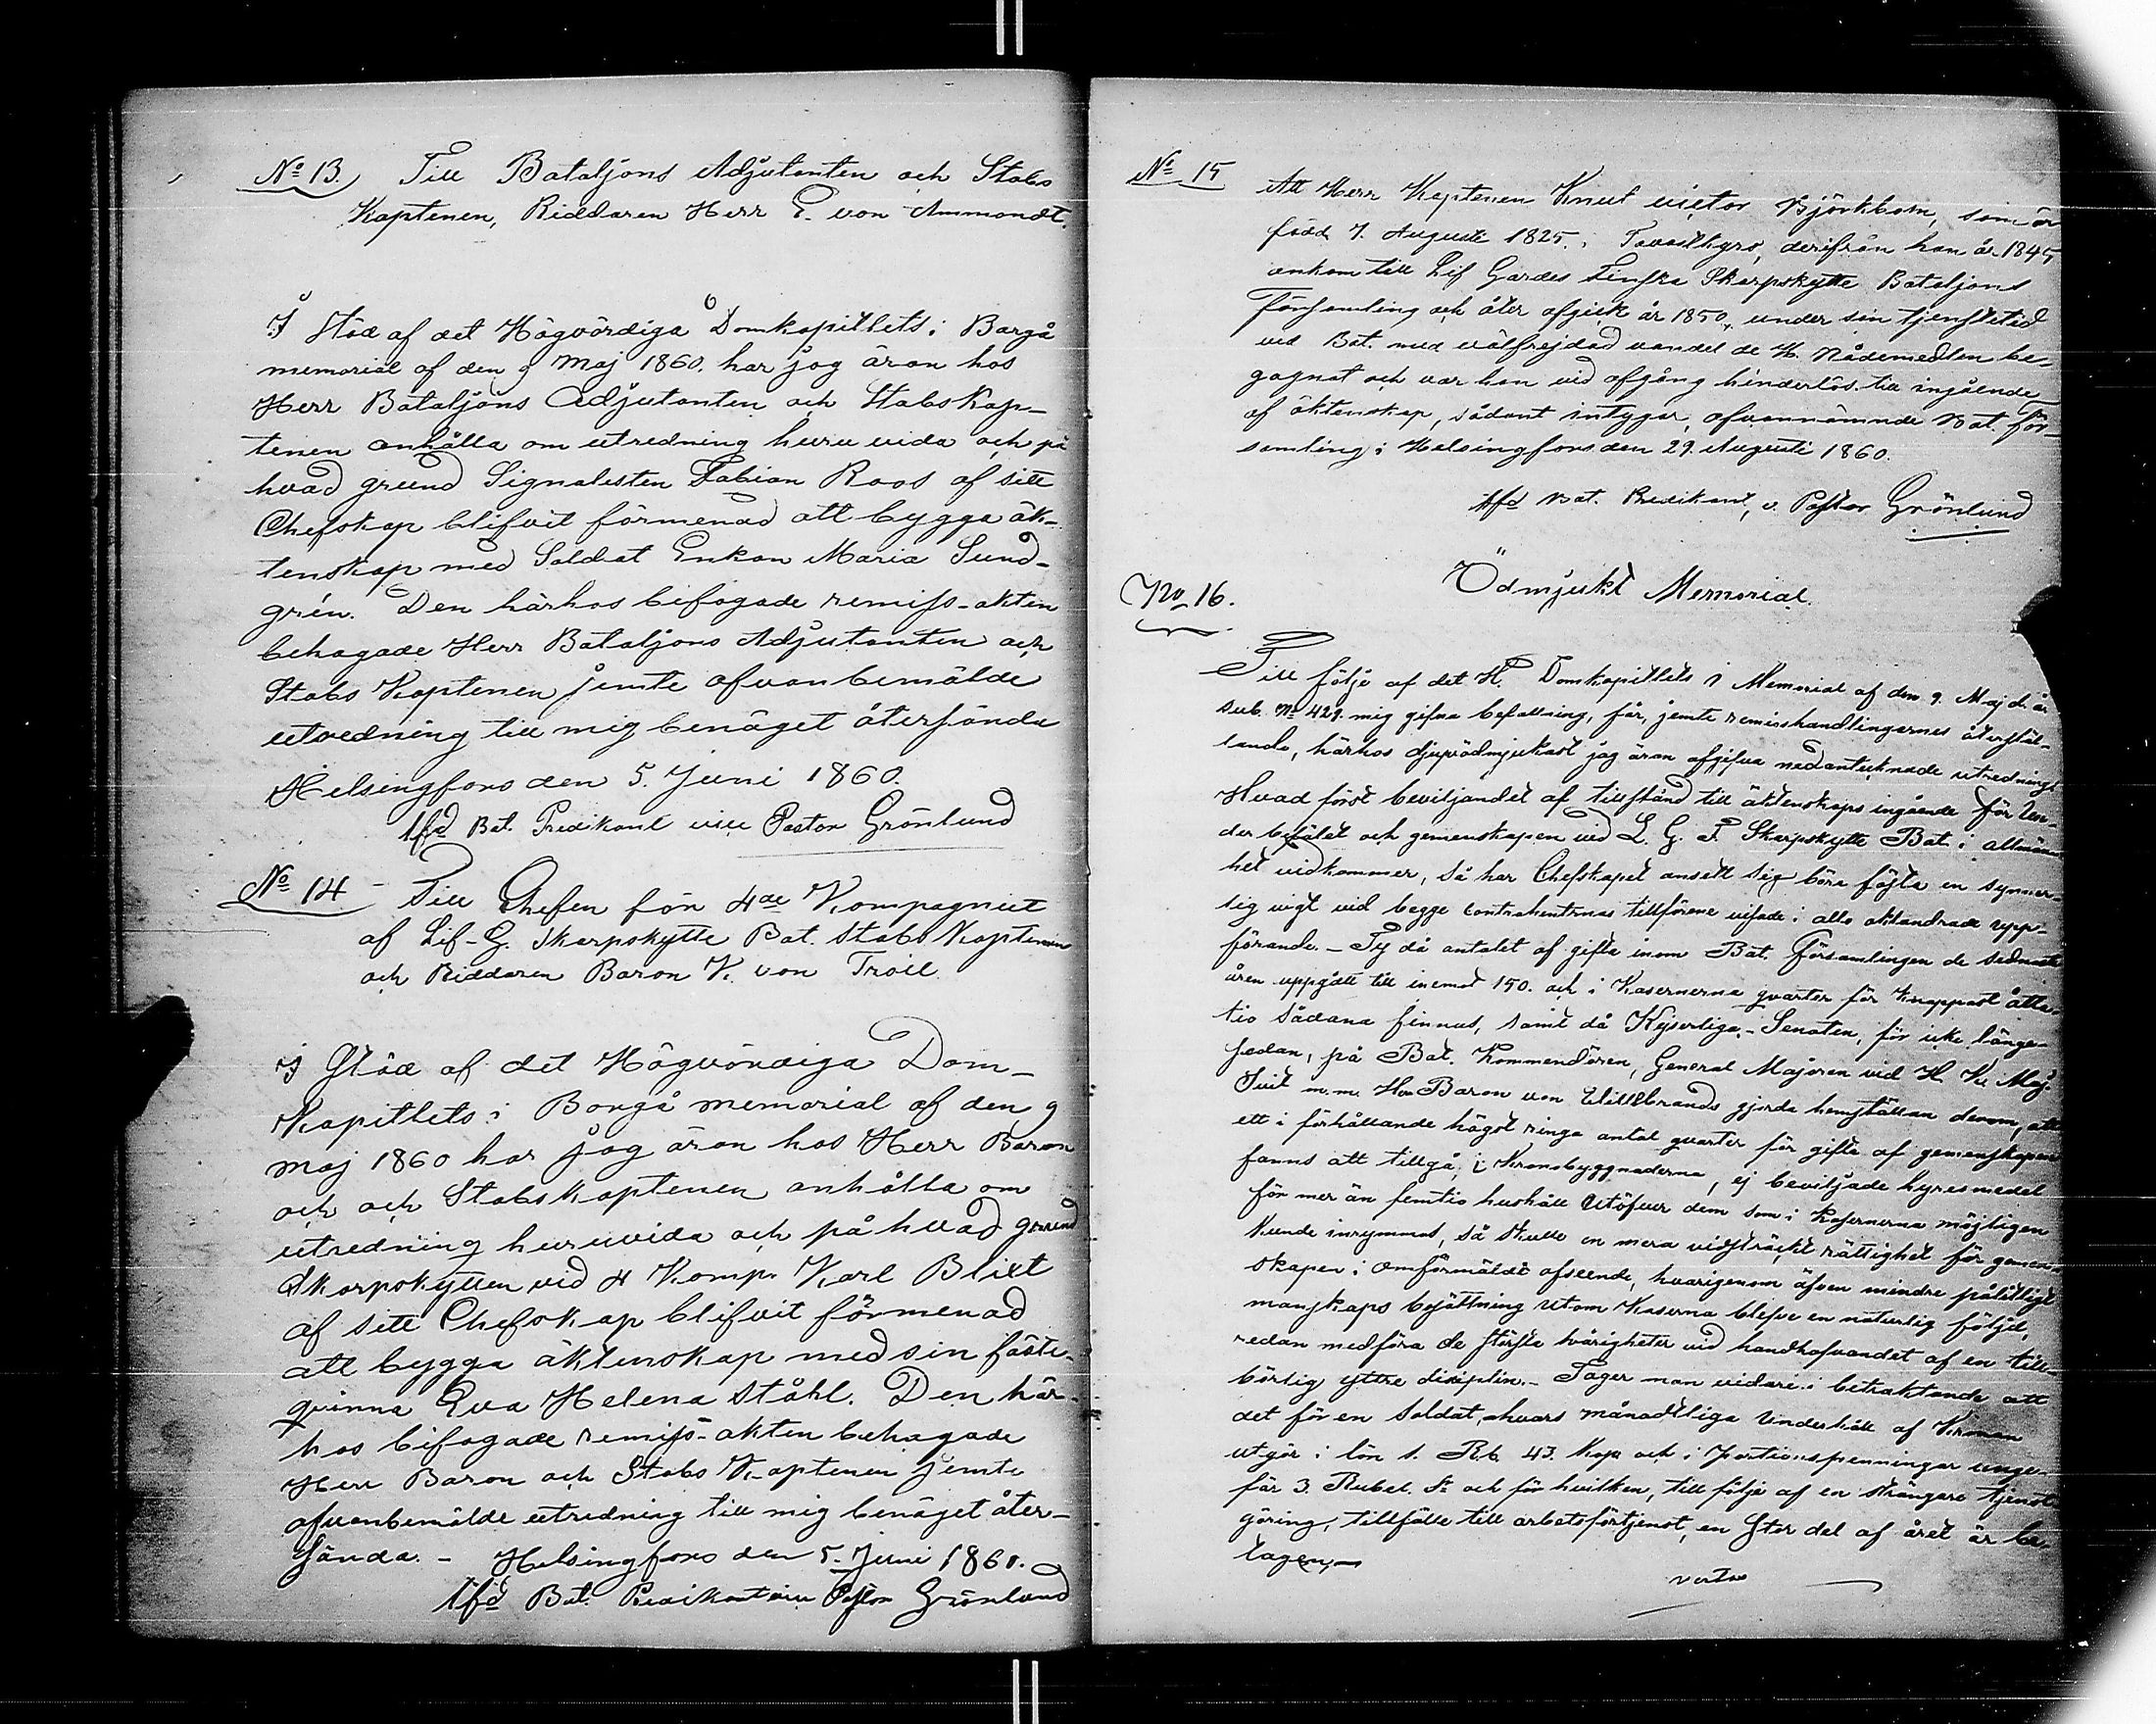 No 13. Till Bataljons Adjutanten och Stabs
Kaptenen, Riddaren Herr E. von Ammondt.
I Stöd af det Högvördiga Domkapitlets i Borgå
memorial af den 9 Maj 1860. har jag äran hos
Herr Bataljons Adjutanten och Stabs Kap-
tenen anhålla om utredning huru vida och på
hvad grund Signalisten Fabian Roos af sitt
Chefskap blifvit förmenad att bygga äk-
tenskap med Soldat Enkan Maria Sund-
grén. Den härhos bifogade remiss-akten
behagade Herr Bataljons Adjutanten och
Stabs Kaptenen jemte ofvanbemälde
utredning till mig benäget återsända
Helsingfors den 5. Juni 1860.
tfd Bat. Predikant vice Pastor Grönlund
No 14 - Till Chefen för 4de Kompagniet
af Lif-G. Skarpskytte Bat. Stabs Kaptenen
och Riddaren Baron K. von Troil
I Stöd af det Högvördiga Dom-
Kapitlets i Borgå memorial af den 9
maj 1860 har jag äran hos Herr Baron
och och Stabskaptenen anhålla om
utredning huruvida och på hvad grund
Skarpskytten vid 4 Komp. Karl Blixt
af sitt Chefskap blifvit förmenad
att bygga äktenskap med sin fäste-
qvinna Eva Helena Ståhl. Den här-
hos bifogade remiss-akten behagade
Herr Baron och Stabs Kaptenen jemte
ofvanbemälde utredning till mig benäget åter-
sända. - Helsingfors den 5. Juni 1860.
tfd Bat. Predikant vice Pastor Grönlund
No 15
Att Herr Kaptenen Knut victor Björkbom, som är
född 7. Augusti 1825. i Tavastkyro, derifrån han år 1845
ankom till Lif Gardes Finska Skarpskytte Bataljons
Församling och åter afgick år 1850., under sin tjenstetid
vid Bat. med välfrejdad vandel de H. Nådemedlen be-
gagnat och var han vid afgång hinderlös till ingående
af äktenskap, sådant intygar, ofvannämnde Bat. för-
samling i Helsingfors den 29. Augusti 1860.
tfd Bat. Predikant, v. Pastor Grönlund
No 16.
Ödmjukt Memorial.
Till följe af det H. Domkapitlets i Memorial af den 9. Maj d. år
sub. No 429. mig gifna befallning, får, jemte remisshandlingarnes återstäl-
lande, härhos djupödmjukast jag äran afgifva nedantecknade utredning
Hvad först beviljandet af tillstånd till äktenskaps ingående för Un-
der befälet och gemenskapen vid L. G. F. Skarpskytte Bat. i allmän-
het vidkommer, så har Chefskapet ansett sig böra fästa en synner-
lig vigt vid begge contrahenternas tillförene visade i allo oklandrade upp-
förande. - Ty då antalet af gifta inom Bat. Församlingen de sednaste
åren uppgått till inemot 150. och i Kasernerna qvarter för knappast åtta-
tio sådana finnas, samt då Kejserliga - Senaten, för icke länge-
sedan, på Bat. Kommendören, General Majoren vid H. K. Maj:
Svit m.m. Herr Baron von Willebrands gjorda hemställan derom, att
ett i förhållande högst ringa antal qvarter för gifta af gemenskapen
fanns att tillgå i Kronobyggnaderna, ej beviljade hyresmedel
för mer än femtio hushåll Utöfver dem som i kasernerna möjligen
kunde inrymmas, så skulle en mera vidsträckt rättighet för gemen-
skapen i omförmäldt afseende, hvarigenom äfven mindre pålitligt
manskaps besättning utom Kaserna blefve en naturlig följd,
redan medföra de största svårigheter vid handhafvandet af en till-
börlig yttre disiplin. - Tager man vidare i betraktande att
det för en Soldat, hvars månadtliga Underhåll af Kronan
utgör i lön 1. Rb. 43. Kop och i portionspenningar unge-
fär 3. Rubel. Sr och för hvilken, till följe af en strängare tjenst-
göring, tillfälle till arbetsförtjenst, en stor del af året är be-
tagen, -
verte